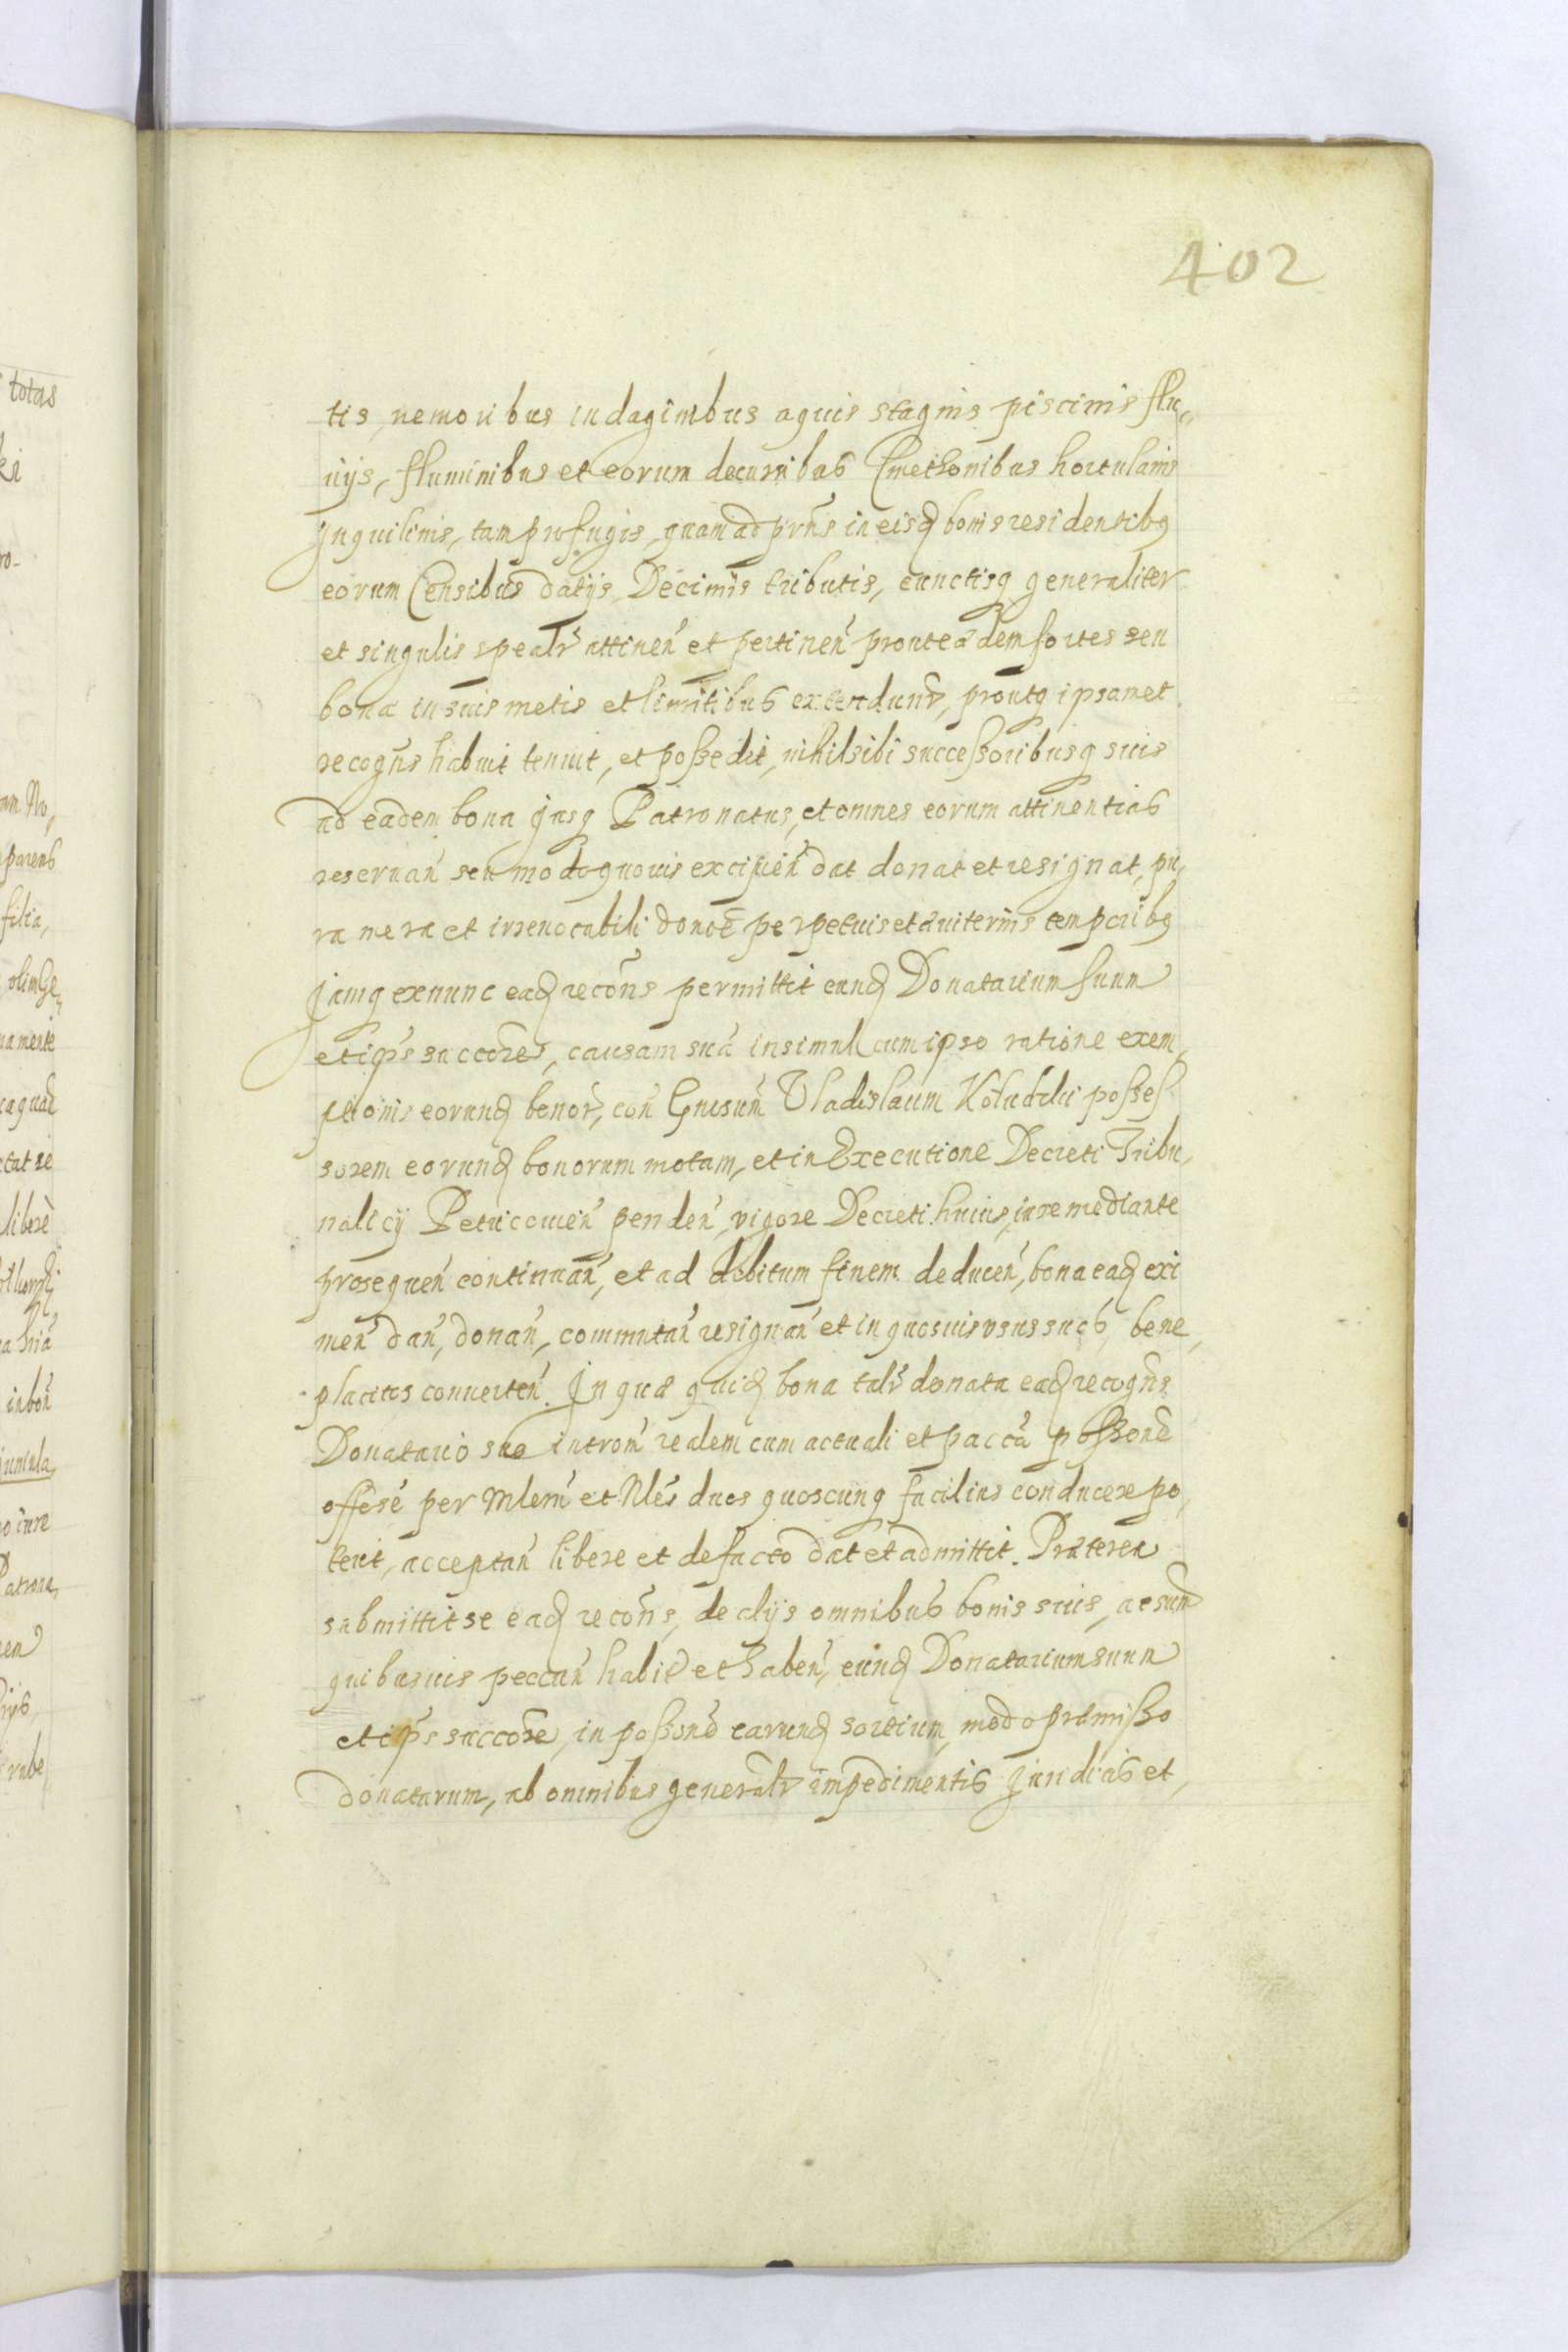 402
tis, nemoribus indaginibus aquis stagnis piscinis flu„
uijs, fluminibus et eorum decursibus Cmethonibus hortulanis
Inquilinis, tam profugis, quam ad prn̄s in eisq̃ bonis residentibq
eorum Censibus datijs Decimis tributis, cunctisq generaliter
et singulis spealr̃ attinen̄ et pertinen̄ prout eædem sortes seu
bona in suis metis et limitibus extendunr̃, proutq ipsamet
recogn̄s habuit tenuit, et possedit, nihil sibi successoribusq suis
ad eadem bona jusq Patronatus, et omnes eorum attinentias
reseruan̄ seu modo quouis excipien̄ dat donat et resignat, pu„
ra mera et irreuocabili donoē perpetuis et æuiternis temporibq
Jamq ex nunc eadq̃ recōns permittit eundq̃ Donatarium suum
et ip̄s succores, causam suā insimul cum ipso ratione exem„
ptionis eorundq̃ bonor̃, con̄ Gnosum̄ Vladislaum Kołudzki posses„
sorem eorundq̃ bonorum motam, et in Executione Decreti Tribu„
nalicij Petricouien̄ penden̄, vigore Decreti huius, iure mediante
prosequen̄ continuan̄, et ad debitum finem deducen̄, bona eadq̃ exi
men̄ dan̄, donan̄, commutan̄ resignan̄ et in quosuis vsus suos, bene„
placitos conuerten̄. In quæ quidq̃ bona talr̃ donata eadq̃ recogn̄s
Donatario suo introm̄ realem cum actuali et paccā possonē
offerē per Mlem̄ et Nles̄ duos quoscunq facilius conducere po„
terit, acceptan̄ libere et de facto dat et admittit. Præterea
submittit se eadq̃ recōns, de alijs omnibus bonis suis, ac sum̄
quibusuis peccun̄ habit̃ et haben̄, eundq̃ Donatarium suum
et ip̄s succōre, in possonē earundq̃ sortium, modo præmisso
donatarum, ab omnibus generalr̃ impedimentis Juridicis et